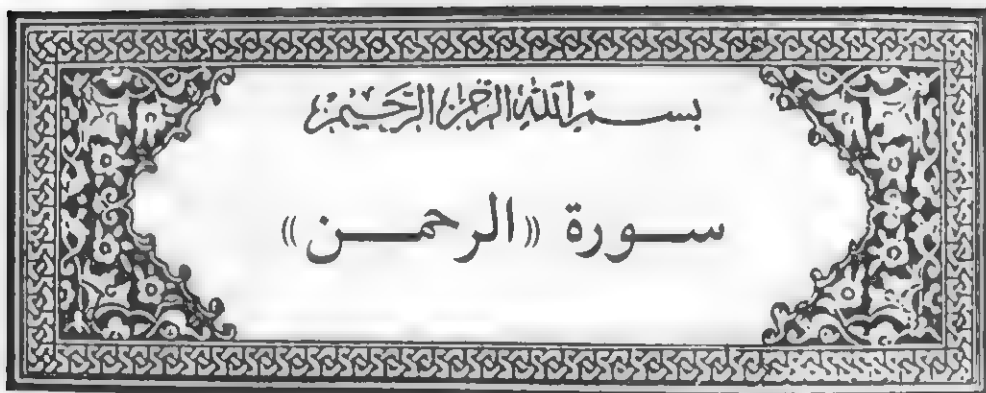 بسم الله الرحمن الرحيم
سورة «الرحمن»